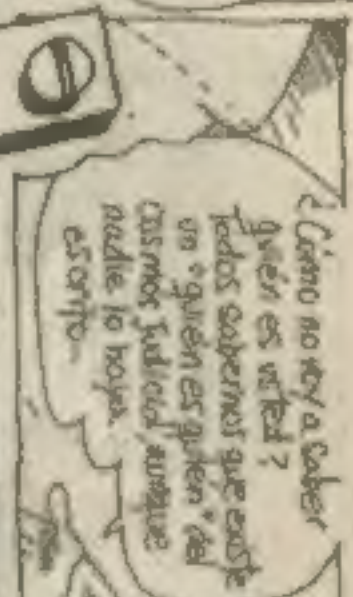 ¿Cómo no voy a saber
quién es usted?
Todos sabemos que existe
un "quién es quién" del
cosmos judicial, aunque
nadie lo haya
escrito...